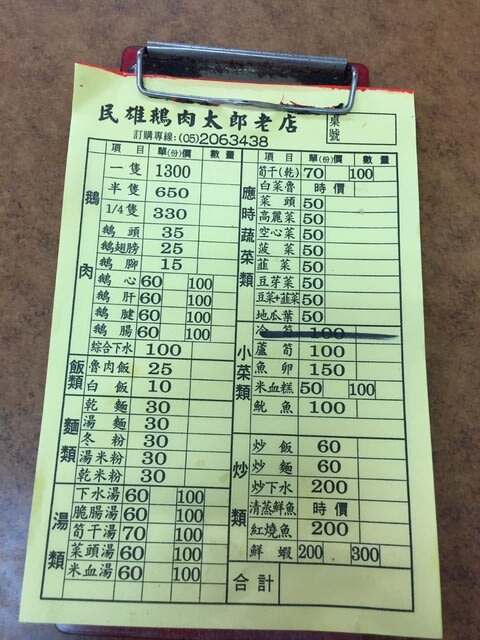 民雄鵝肉太郎老店
訂購專線:(05)2063438
桌號
項目 單(份)價 數量
鵝肉
一隻 1300
半隻 650
1/4隻 330
鵝頭 35
鵝翅膀 25
鵝腳 15
鵝心 60 100
鵝肝 60 100
鵝腱 60 100
鵝腸 60 100
綜合下水 100
飯類
魯肉飯 25
白飯 10
麵類
乾麵 30
湯麵 30
冬粉 30
湯米粉 30
乾米粉 30
湯類
下水湯 60 100
脆腸湯 60 100
筍干湯 70 100
菜頭湯 60 100
米血湯 60 100
項目 單(份)價 數量
應時蔬菜類
筍干(乾) 70 100
白菜魯 時價
菜頭 50
高麗菜 50
空心菜 50
菠菜 50
韭菜 50
豆芽菜 50
豆菜+韭菜 50
地瓜葉 50
小菜類
冷筍 100
蘆筍 100
魚卵 150
米血糕 50 100
魷魚 100
炒類
炒飯 60
炒麵 60
炒下水 200
清蒸鮮魚 時價
紅燒魚 200
鮮蝦 200 300
合計